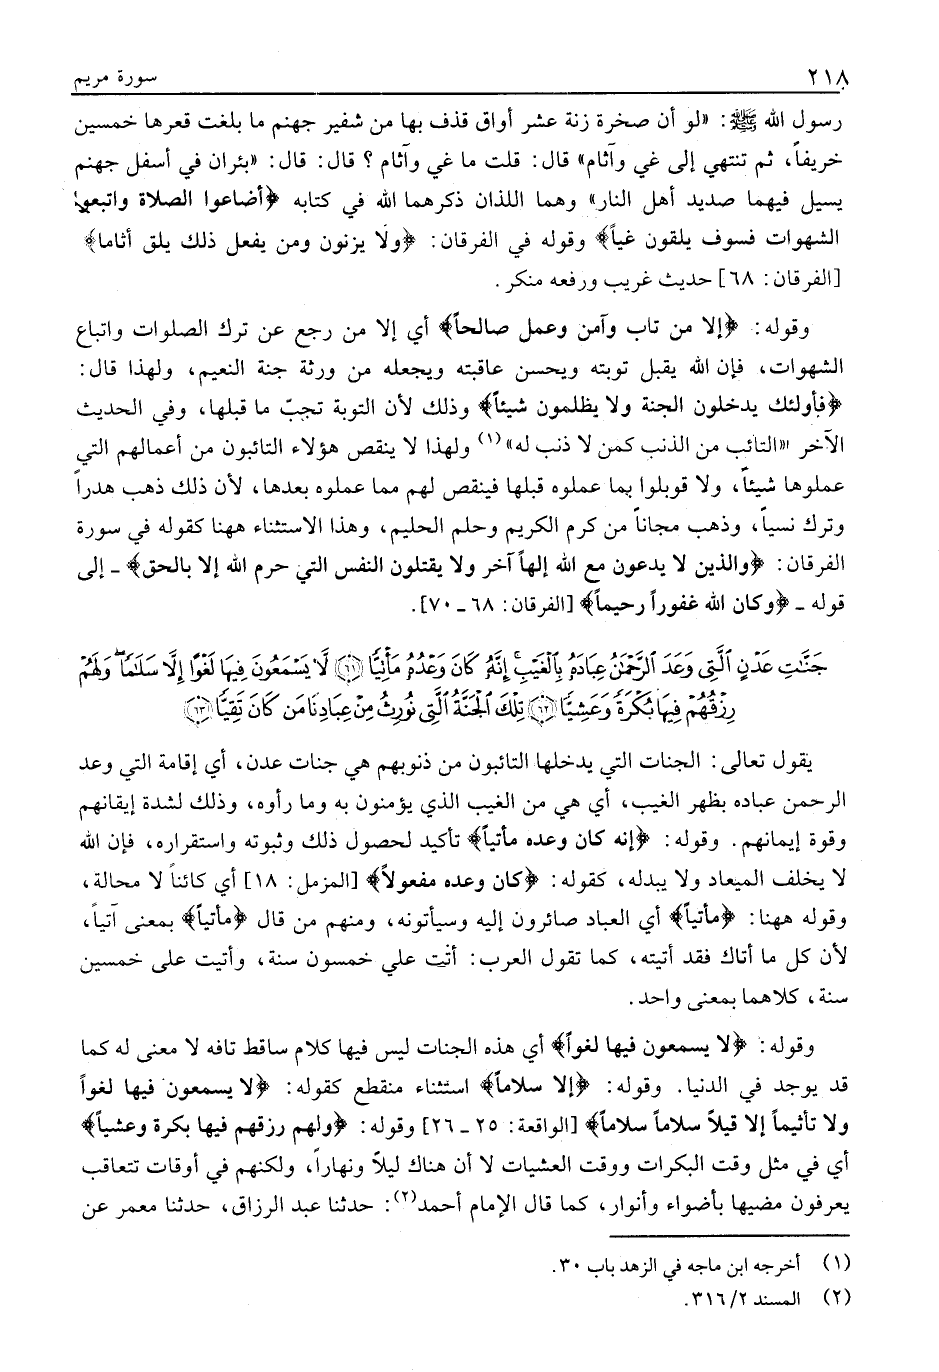 ٢١٨ سورة مريم
رسول الله ﷺ: «لو أن صخرة زنة عشر أواق قذف بها من شفير جهنم ما بلغت قعرها خمسين
خريفاً، ثم تنتهي إلى غي وآثام» قال: قلت ما غي وآثام؟ قال: قال: «بئران في أسفل جهنم
يسيل فيهما صديد أهل النار» وهما اللذان ذكرهما الله في كتابه ﴿أضاعوا الصلاة واتبعوا
الشهوات فسوف يلقون غياً﴾ وقوله في الفرقان: ﴿ولا يزنون ومن يفعل ذلك يلق أثاما﴾
[الفرقان: ٦٨] حديث غريب ورفعه منكر.
وقوله: ﴿إلا من تاب وآمن وعمل صالحاً﴾ أي إلا من رجع عن ترك الصلوات واتباع
الشهوات، فإن الله يقبل توبته ويحسن عاقبته ويجعله من ورثة جنة النعيم، ولهذا قال:
﴿فأولئك يدخلون الجنة ولا يظلمون شيئاً﴾ وذلك لأن التوبة تجبّ ما قبلها، وفي الحديث
الآخر «التائب من الذنب كمن لا ذنب له»(١) ولهذا لا ينقص هؤلاء التائبون من أعمالهم التي
عملوها شيئاً، ولا قوبلوا بما عملوه قبلها فينقص لهم مما عملوه بعدها، لأن ذلك ذهب هدراً
وترك نسياً، وذهب مجاناً من كرم الكريم وحلم الحليم، وهذا الاستثناء ههنا كقوله في سورة
الفرقان: ﴿والذين لا يدعون مع الله إلهاً آخر ولا يقتلون النفس التي حرم الله إلا بالحق﴾ ـ إلى
قوله ـ ﴿وكان الله غفوراً رحيماً﴾ [الفرقان: ٦٨ ـ ٧٠].
جَنَّاتِ عَدْنٍ الَّتِي وَعَدَ الرَّحْمَٰنُ عِبَادَهُ بِالْغَيْبِ ۚ إِنَّهُ كَانَ وَعْدُهُ مَأْتِيًّا (٦١) لَّا يَسْمَعُونَ فِيهَا لَغْوًا إِلَّا سَلَامًا ۖ وَلَهُمْ
رِزْقُهُمْ فِيهَا بُكْرَةً وَعَشِيًّا (٦٢) تِلْكَ الْجَنَّةُ الَّتِي نُورِثُ مِنْ عِبَادِنَا مَن كَانَ تَقِيًّا (٦٣)
يقول تعالى: الجنات التي يدخلها التائبون من ذنوبهم هي جنات عدن، أي إقامة التي وعد
الرحمن عباده بظهر الغيب، أي هي من الغيب الذي يؤمنون به وما رأوه، وذلك لشدة إيقانهم
وقوة إيمانهم. وقوله: ﴿إنه كان وعده مأتياً﴾ تأكيد لحصول ذلك وثبوته واستقراره، فإن الله
لا يخلف الميعاد ولا يبدله، كقوله: ﴿كان وعده مفعولاً﴾ [المزمل: ١٨] أي كائناً لا محالة،
وقوله ههنا: ﴿مأتياً﴾ أي العباد صائرون إليه وسيأتونه، ومنهم من قال ﴿مأتياً﴾ بمعنى آتياً،
لأن كل ما أتاك فقد أتيته، كما تقول العرب: أتت علي خمسون سنة، وأتيت على خمسين
سنة، كلاهما بمعنى واحد.
وقوله: ﴿لا يسمعون فيها لغواً﴾ أي هذه الجنات ليس فيها كلام ساقط تافه لا معنى له كما
قد يوجد في الدنيا. وقوله: ﴿إلا سلاماً﴾ استثناء منقطع كقوله: ﴿لا يسمعون فيها لغواً
ولا تأثيماً إلا قيلاً سلاماً سلاماً﴾ [الواقعة: ٢٥ ـ ٢٦] وقوله: ﴿ولهم رزقهم فيها بكرة وعشياً﴾
أي في مثل وقت البكرات ووقت العشيات لا أن هناك ليلاً ونهاراً، ولكنهم في أوقات تتعاقب
يعرفون مضيها بأضواء وأنوار، كما قال الإمام أحمد(٢): حدثنا عبد الرزاق، حدثنا معمر عن
(١) أخرجه ابن ماجه في الزهد باب ٣٠.
(٢) المسند ٢/ ٣١٦.